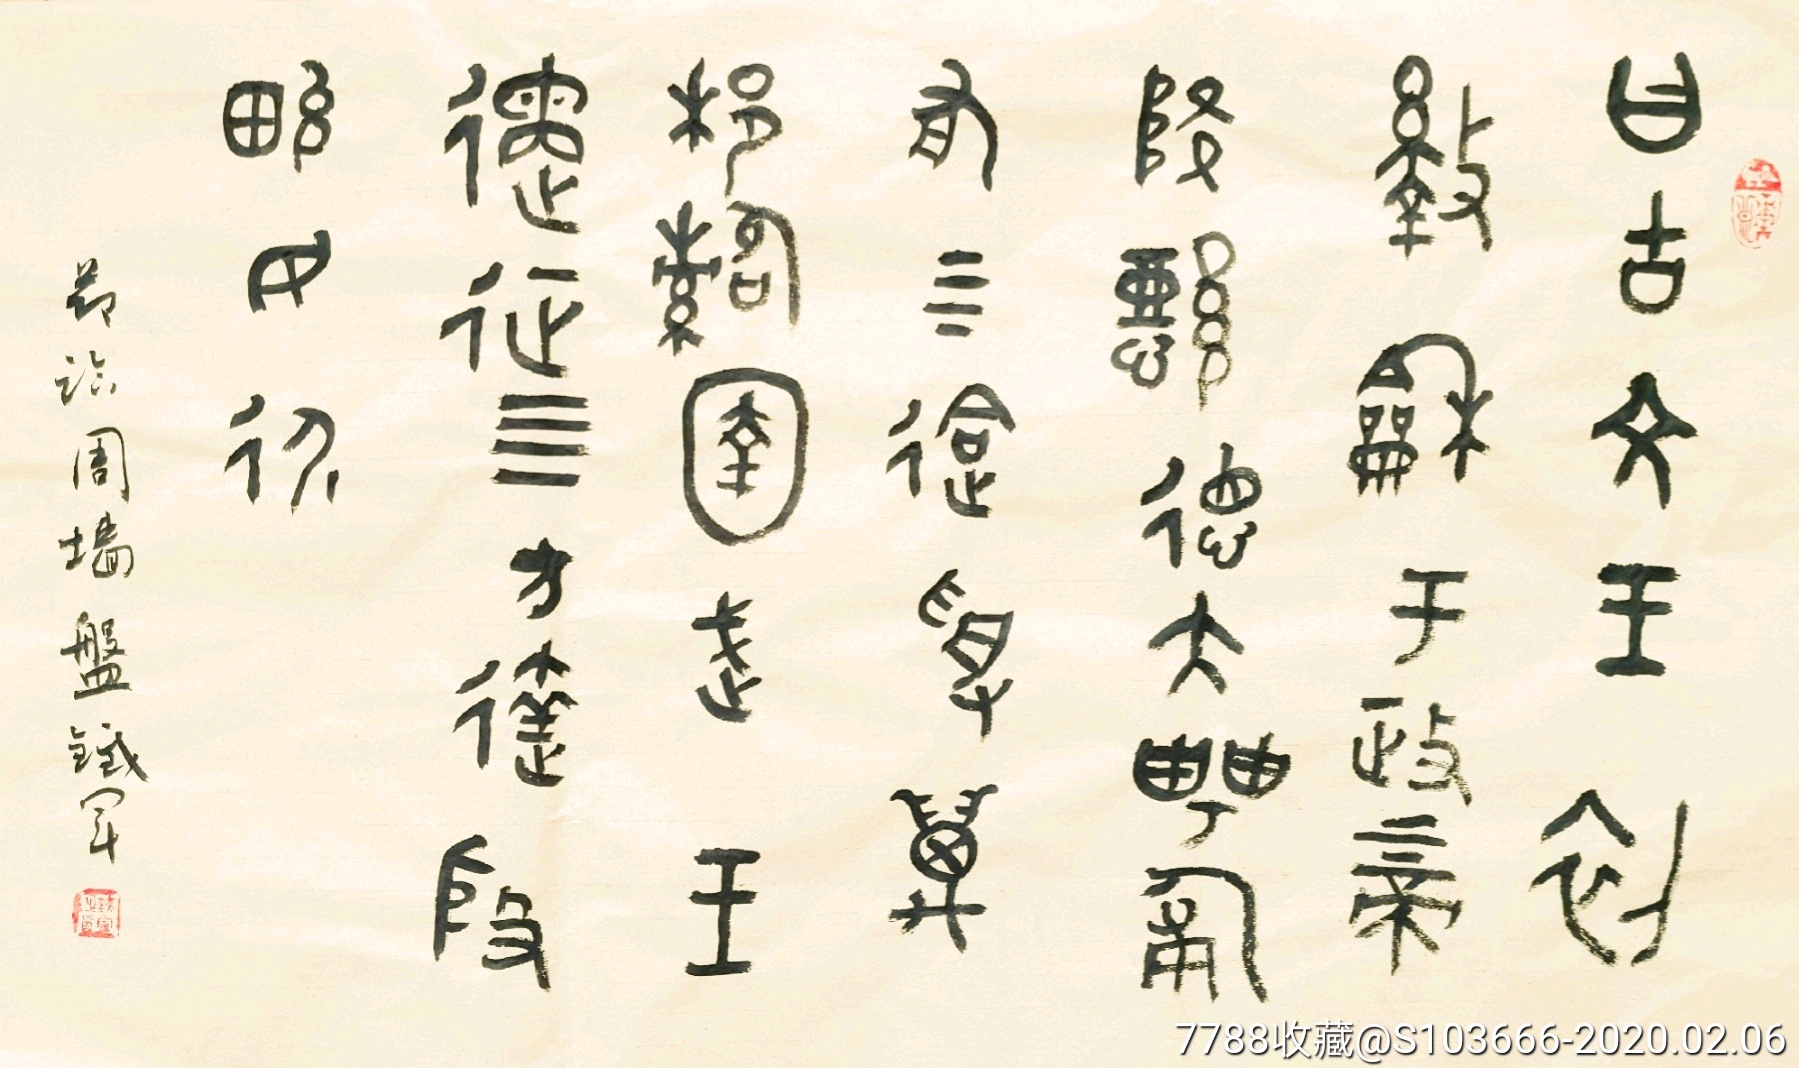 曰古文王初
盭龢于政上帝
降懿德大甹匍
有上下迨受萬
邦圉武王
遹征四方達殷
畯民永
節臨周墙盤鐵軍
7788收藏@S103666-2020.02.06